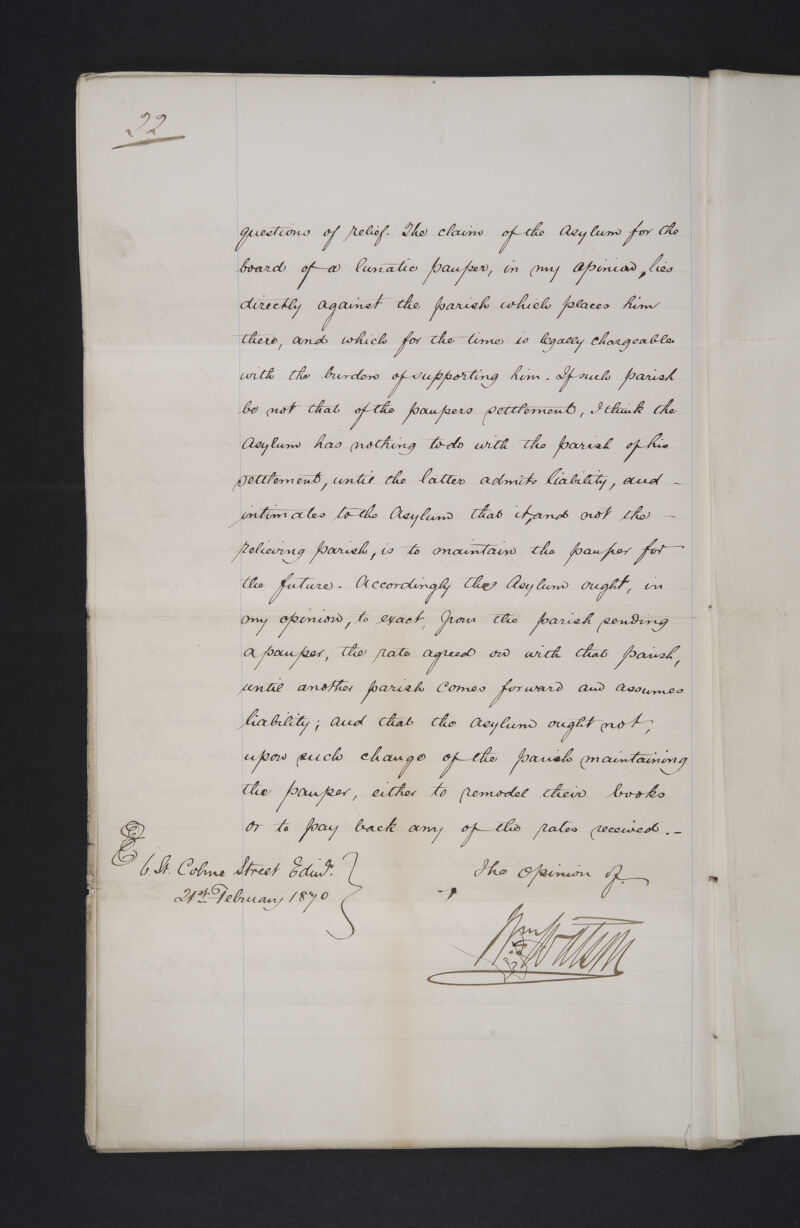 22
questions of relief. The claim of the Asylum for the
board of a lunatic pauper, in my opinion, lies
directly against the parish which places him
there, and which for the time is legally chargeable
with the burden of supporting him. If such parish
be not that of the paupers settlement, I think the
Asylum has nothing to do with the parish of his
settlement, until the latter admits liability, and -
intimates to the Asylum that it, and not the -
relieving parish, is to maintain the pauper for
the future. Accordingly the Asylum ought, in
my opinion, to exact, from the parish sending
a pauper, the rate agreed on with that parish,
until another parish comes forward and assumes
liability; and that the Asylum ought not,
upon such change of the parish maintaining
the pauper, either to remodel their books
or to pay back any of the rates received. -
6 St. Colme Street Edinr.
21st February 1870
The Opinion of
Wm Watson